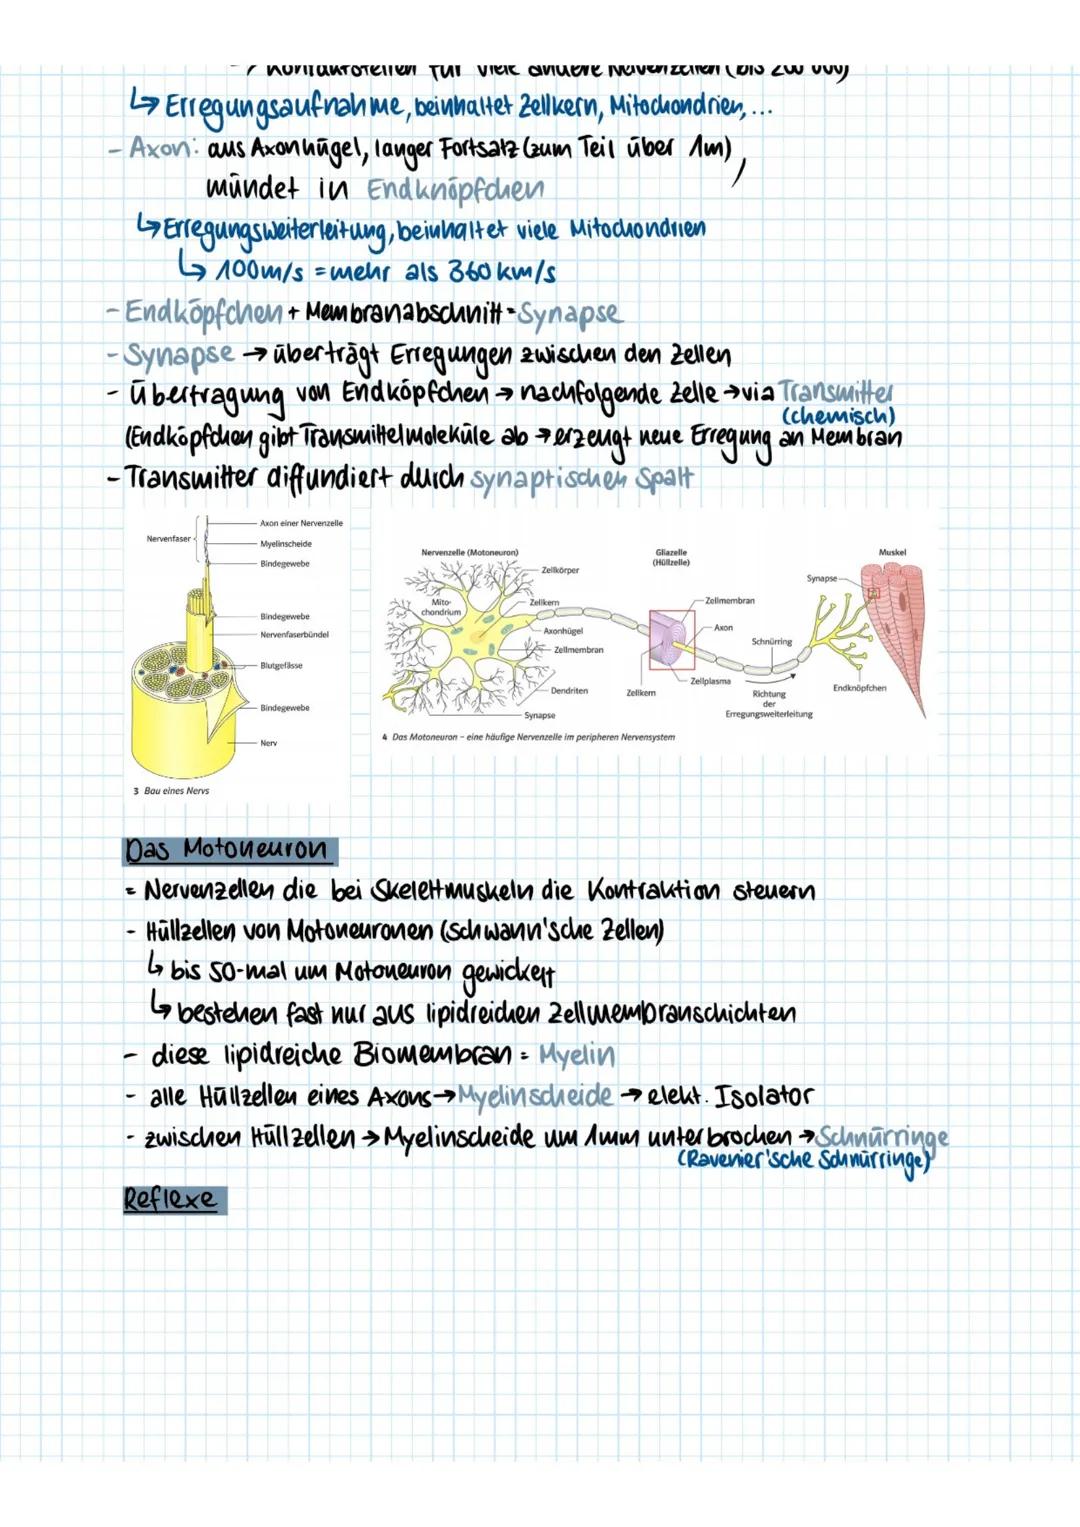 -> Kontaktstellen für viele andere Nervenzellen (bis 200 000)
↳ Erregungsaufnahme, beinhaltet Zellkern, Mitochondrien, ...
- Axon: aus Axonhügel, langer Fortsatz (zum Teil über 1m),
mündet in Endknöpfchen
↳ Erregungsweiterleitung, beinhaltet viele Mitochondrien
↳ 100m/s = mehr als 360 km/s
- Endköpfchen + Membranabschnitt = Synapse
- Synapse → überträgt Erregungen zwischen den Zellen
- Übertragung von Endköpfchen → nachfolgende Zelle → via Transmitter
(chemisch)
(Endköpfchen gibt Transmittelmoleküle ab → erzeugt neue Erregung an Membran
- Transmitter diffundiert durch synaptischen Spalt
Axon einer Nervenzelle
Nervenfaser
Myelinscheide
Bindegewebe
Bindegewebe
Nervenfaserbündel
Blutgefässe
Bindegewebe
Nerv
3 Bau eines Nervs
Nervenzelle (Motoneuron)
Gliazelle
(Hüllzelle)
Muskel
Zellkörper
Synapse
Mito-
chondrium
Zellkern
Zellmembran
Axonhügel
Axon
Zellmembran
Schnürring
Dendriten
Zellkern
Zellplasma
Endknöpfchen
Richtung
der
Erregungsweiterleitung
Synapse
4 Das Motoneuron – eine häufige Nervenzelle im peripheren Nervensystem
Das Motoneuron
= Nervenzellen die bei Skelettmuskeln die Kontraktion steuern
- Hüllzellen von Motoneuronen (schwann'sche Zellen)
↳ bis 50-mal um Motoneuron gewickelt
↳ bestehen fast nur aus lipidreichen Zellmembranschichten
- diese lipidreiche Biomembran = Myelin
- alle Hüllzellen eines Axons → Myelinscheide → elekt. Isolator
- zwischen Hüllzellen → Myelinscheide um 1mm unterbrochen → Schnürringe
(Ravenier'sche Schnürringe)
Reflexe